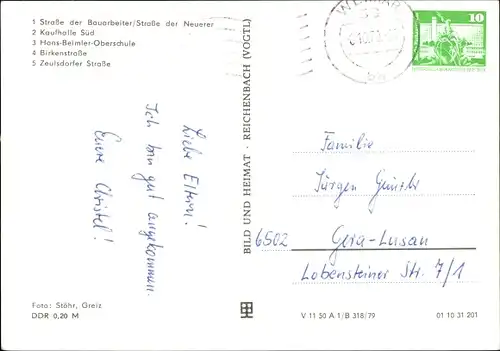 1 Straße der Bauarbeiter/Straße der Neuerer
2 Kaufhalle Süd
3 Hans-Beimler-Oberschule
4 Birkenstraße
5 Zeulsdorfer Straße
Liebe Eltern!
Ich bin gut angekommen.
Eure Christel!
Foto: Stöhr, Greiz
DDR 0,20 M
BILD UND HEIMAT · REICHENBACH (VOGTL)
10
Familie
Jürgen Günther
6502 Gera-Lusan
Lobensteiner Str. 7/1
V 11 50 A 1/B 318/79
01 10 31 201